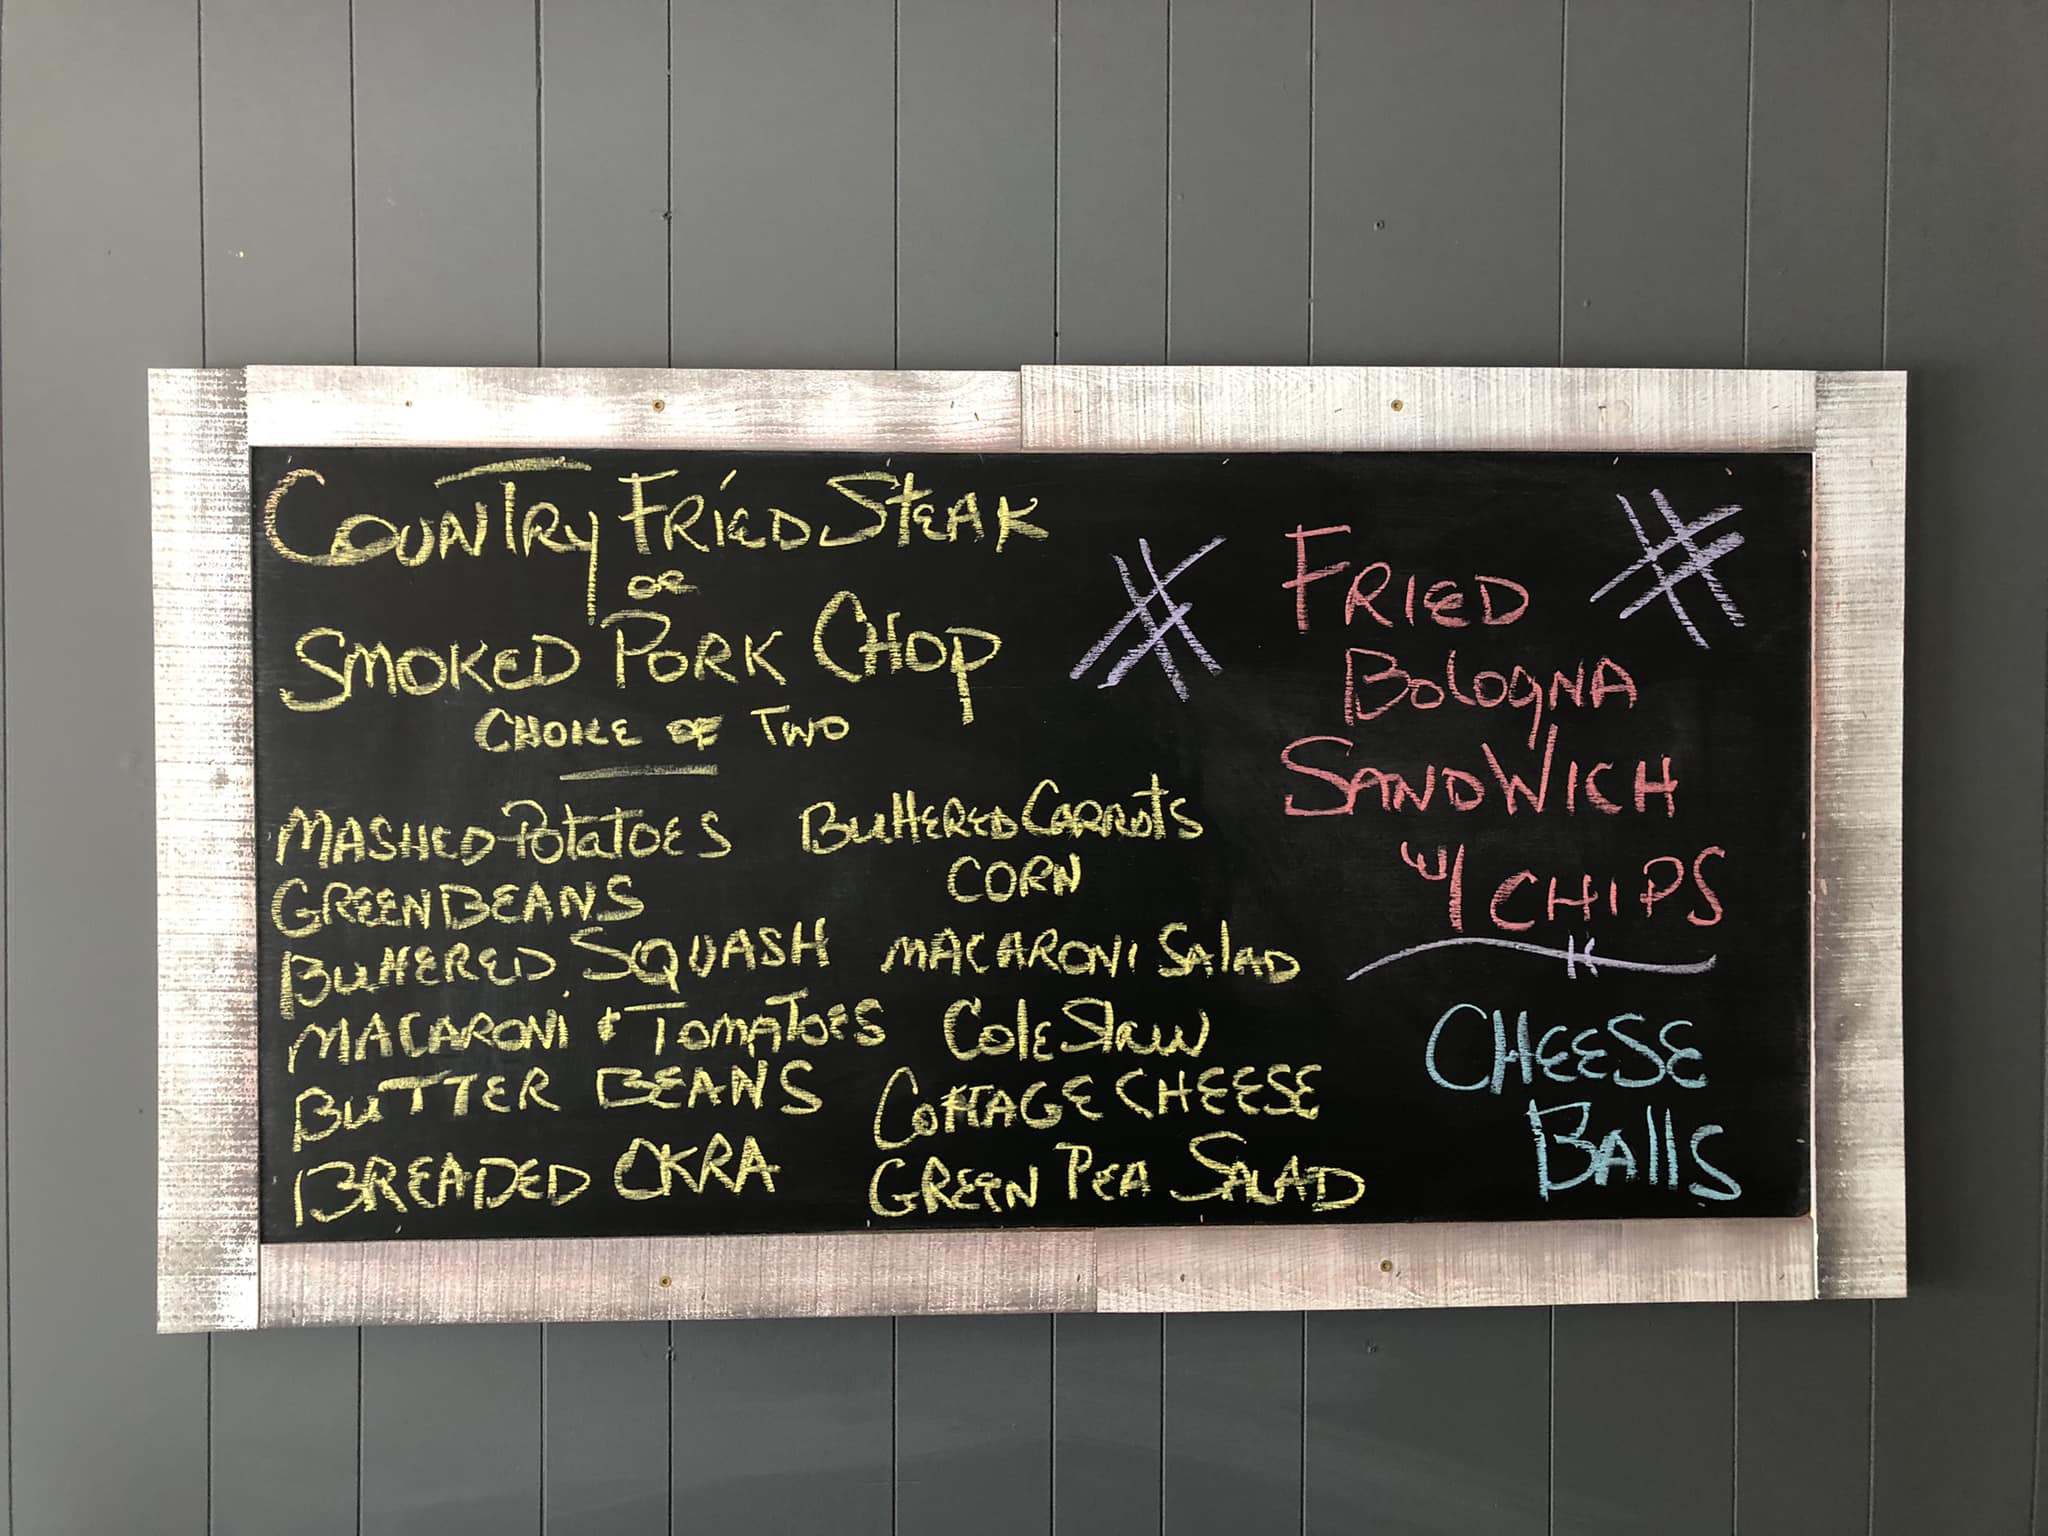 COUNTRY FRIED STEAK
OR
SMOKED PORK CHOP
CHOICE OF TWO
MASHED POTATOES
GREEN BEANS
BUTTERED SQUASH
MACARONI + TOMATOES
BUTTER BEANS
BREADED OKRA
BUTTERED CARROTS
CORN
MACARONI SALAD
COLE SLAW
COTTAGE CHEESE
GREEN PEA SALAD
FRIED
BOLOGNA
SANDWICH
W/ CHIPS
CHEESE
BALLS